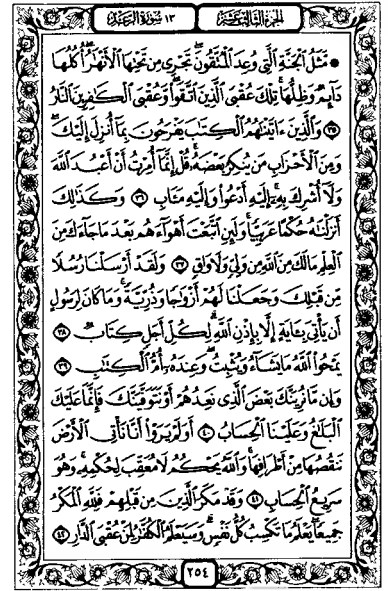 الجزء الثالث عشر ١٣ سورة الرعد
۞ مَّثَلُ الْجَنَّةِ الَّتِي وُعِدَ الْمُتَّقُونَ ۖ تَجْرِي مِن تَحْتِهَا الْأَنْهَارُ ۖ أُكُلُهَا
دَائِمٌ وَظِلُّهَا ۚ تِلْكَ عُقْبَى الَّذِينَ اتَّقَوا ۖ وَّعُقْبَى الْكَافِرِينَ النَّارُ
٣٥ وَالَّذِينَ آتَيْنَاهُمُ الْكِتَابَ يَفْرَحُونَ بِمَا أُنزِلَ إِلَيْكَ ۖ
وَمِنَ الْأَحْزَابِ مَن يُنكِرُ بَعْضَهُ ۚ قُلْ إِنَّمَا أُمِرْتُ أَنْ أَعْبُدَ اللَّهَ
وَلَا أُشْرِكَ بِهِ ۚ إِلَيْهِ أَدْعُو وَإِلَيْهِ مَآبِ ٣٦ وَكَذَٰلِكَ
أَنزَلْنَاهُ حُكْمًا عَرَبِيًّا ۚ وَلَئِنِ اتَّبَعْتَ أَهْوَاءَهُم بَعْدَمَا جَاءَكَ مِنَ
الْعِلْمِ مَا لَكَ مِنَ اللَّهِ مِن وَلِيٍّ وَلَا وَاقٍ ٣٧ وَلَقَدْ أَرْسَلْنَا رُسُلًا
مِّن قَبْلِكَ وَجَعَلْنَا لَهُمْ أَزْوَاجًا وَذُرِّيَّةً ۚ وَمَا كَانَ لِرَسُولٍ
أَن يَأْتِيَ بِآيَةٍ إِلَّا بِإِذْنِ اللَّهِ ۗ لِكُلِّ أَجَلٍ كِتَابٌ ٣٨
يَمْحُو اللَّهُ مَا يَشَاءُ وَيُثْبِتُ ۖ وَعِندَهُ أُمُّ الْكِتَابِ ٣٩
وَإِن مَّا نُرِيَنَّكَ بَعْضَ الَّذِي نَعِدُهُمْ أَوْ نَتَوَفَّيَنَّكَ فَإِنَّمَا عَلَيْكَ
الْبَلَاغُ وَعَلَيْنَا الْحِسَابُ ٤٠ أَوَلَمْ يَرَوْا أَنَّا نَأْتِي الْأَرْضَ
نَنقُصُهَا مِنْ أَطْرَافِهَا ۚ وَاللَّهُ يَحْكُمُ لَا مُعَقِّبَ لِحُكْمِهِ ۚ وَهُوَ
سَرِيعُ الْحِسَابِ ٤١ وَقَدْ مَكَرَ الَّذِينَ مِن قَبْلِهِمْ فَلِلَّهِ الْمَكْرُ
جَمِيعًا ۖ يَعْلَمُ مَا تَكْسِبُ كُلُّ نَفْسٍ ۗ وَسَيَعْلَمُ الْكُفَّارُ لِمَنْ عُقْبَى الدَّارِ ٤٢
٢٥٤